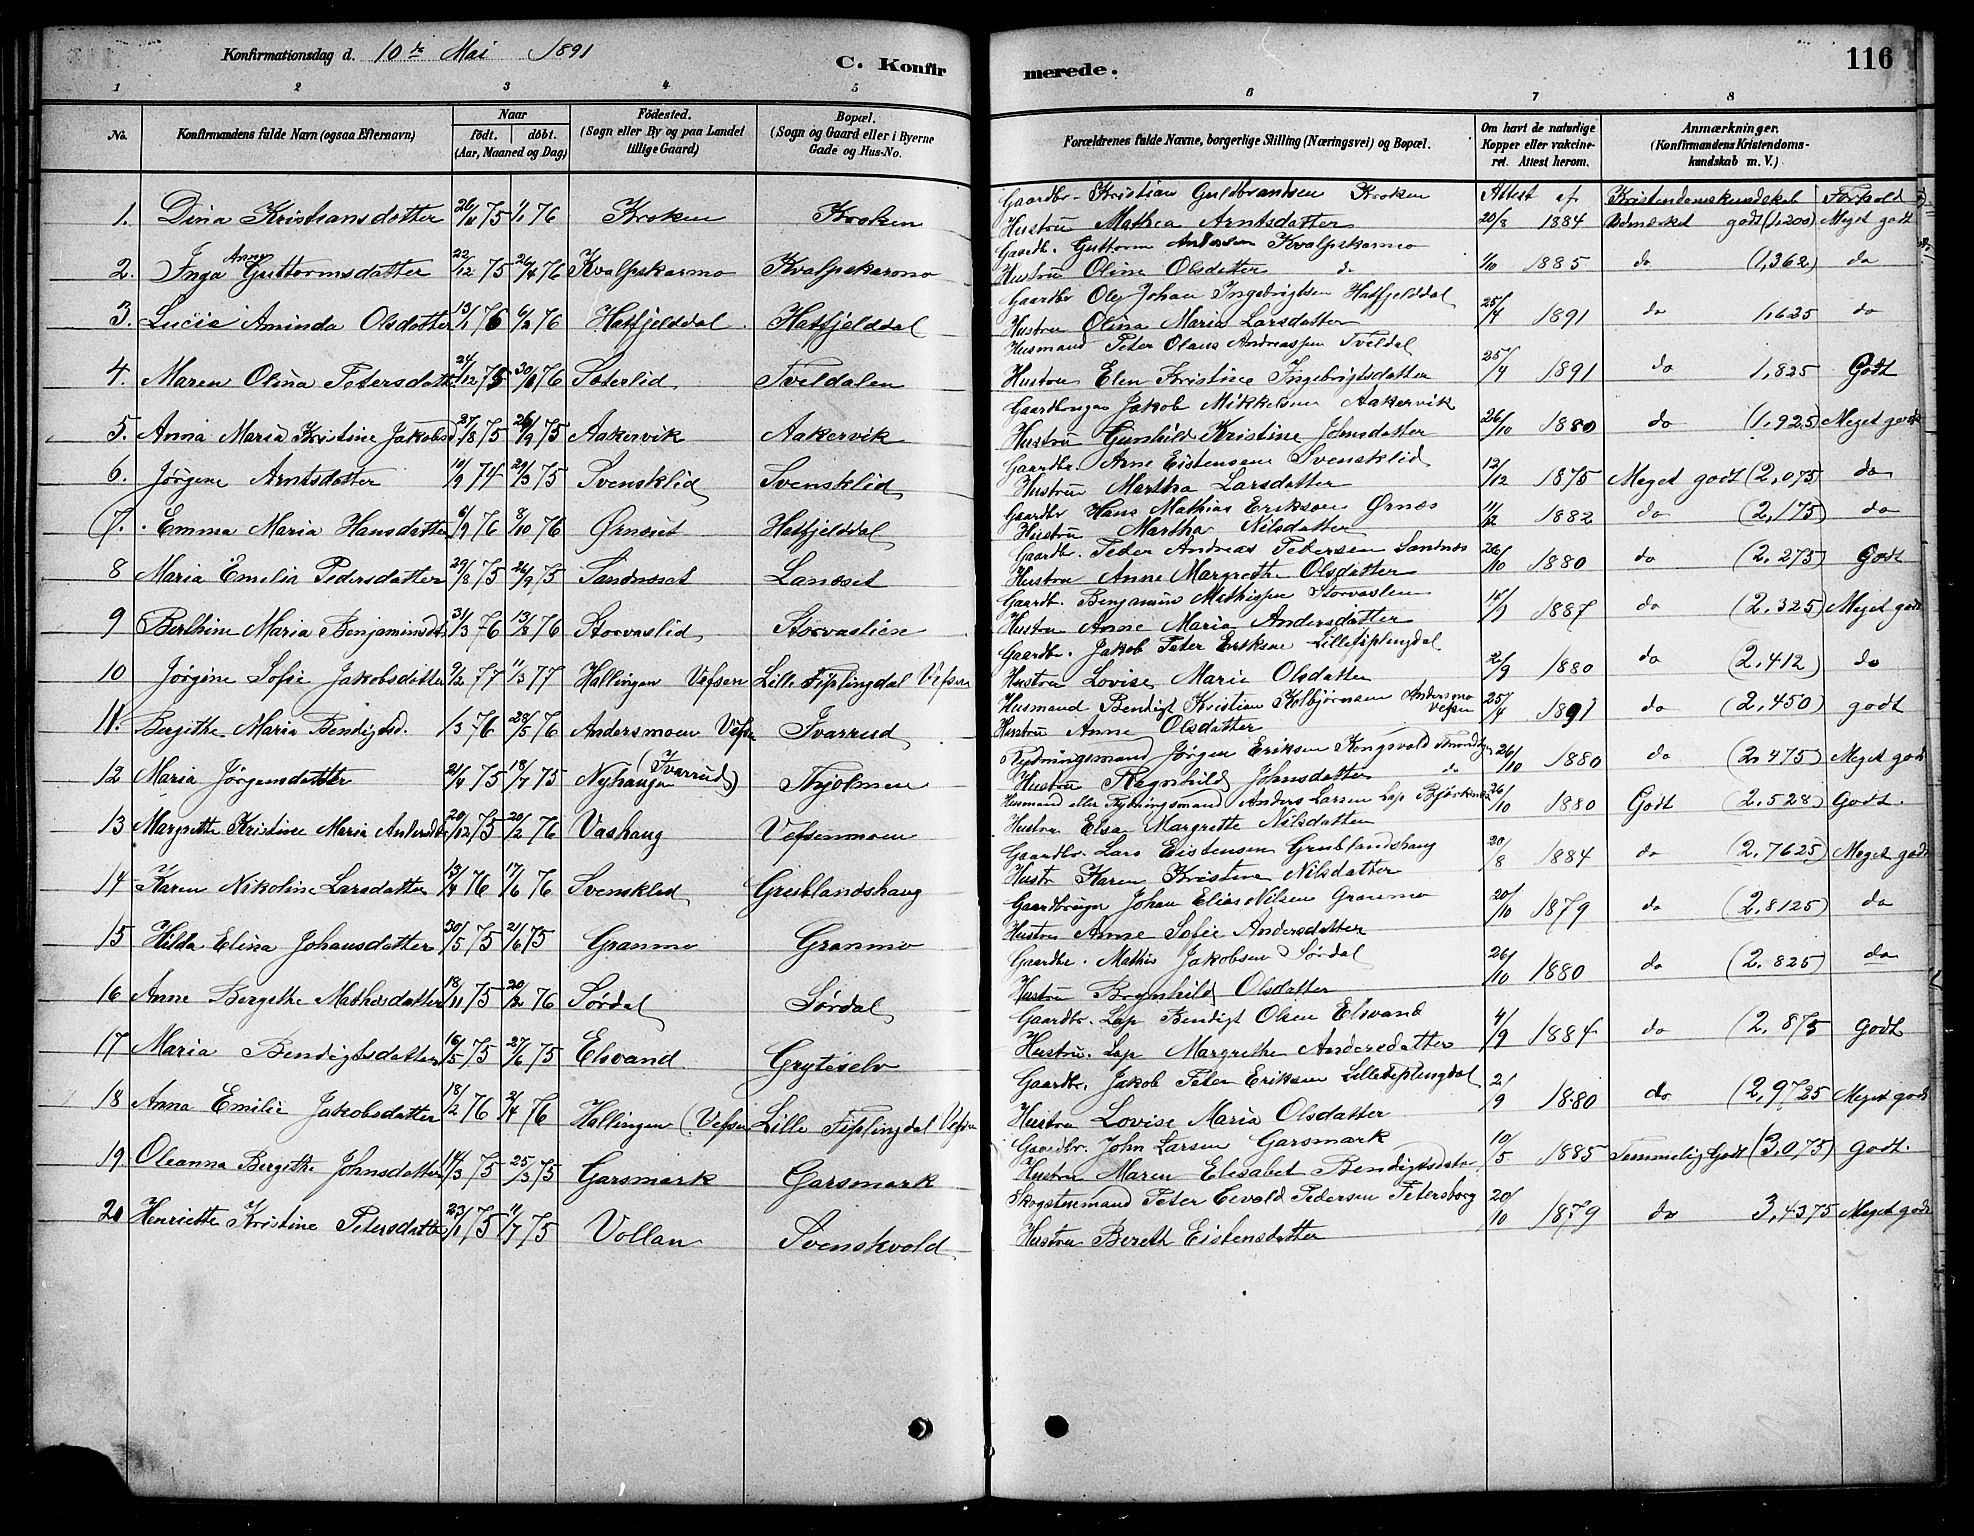 Konfirmationsdag d. 10de Mai 1891
C. Konfirmerede.
116
1 2 3 4 5 6 7 8
No.
Konfirmandens fulde Navn (ogsaa Efternavn)
Naar
födt. döbt.
(Aar, Maaned og Dag)
Födested.
(Sogn eller By og paa Landet
tillige Gaard)
Bopæl.
(Sogn og Gaard eller i Byerne
Gade og Hus-No.
Forældrenes fulde Navne, borgerlige Stilling (Næringsvei) og Bopæl.
Om havt de naturlige
Kopper eller vakcine-
ret. Attest herom.
Anmærkninger.
(Konfirmandens Kristendoms-
kundskab m. V.)
Gaardbr. Kristian Guldbrandsen Kroken Attest af Kristendomskundskab Forhold
1. Dina Kristiansdatter 26/11 75 1/1 76 Kroken Kroken Hustru Mathea Arntsdatter 20/8 1884 godt (1,200) Meget godt
Gaardb. Guttorm Andersen Kvalpskarmo
2. Inga Anne Guttormsdatter 22/12 75 26/4 76 Kvalpskarmo Kvalpskarmo Hustru Oline Olsdatter do 1/10 1885 do (1,362) do
Gaardbr Ole Johan Ingebrigtsen Hatfjelddal
3. Lucia Aminda Olsdatter 13/1 76 6/2 76 Hatfjelddal Hatfjelddal Hustru Olina Maria Larsdatter 25/4 1891 do 1,625 do
Husmand Peter Olaus Andreassen Tveldal
4. Maren Olina Petersdatt 24/12 75 30/1 76 Sæterlid Tveldalen Hustru Elen Kristine Ingebrigtsdatter 25/4 1891 do 1,825 Godt
Gaardbruger Jakob Mikkelsen Aakervik
5. Anna Maria Kristine Jakobsd 27/8 75 26/9 75 Aakervik Aakervik Hustru Gunhild Kristine Johnsdatter 26/10 1880 do (1,925) Meget godt
Gaardbr. Arne Eistensen Svensklid
6. Jørgine Arntsdatter 10/9 74 29/3 75 Svensklid Svensklid Hustru Martha Larsdatter 12/12 1875 Meget godt (2,075) do
Gaardbr Hans Mathias Eriksen Ørnæs
7. Emma Maria Hansdatter 6/9 76 8/10 76 Ørneset Hatfjelddal Hustru Martha Nilsdatter 11/12 1882 do (2,175) do
Gaardbr. Peder Andreas Pedersen Sandnæs
8 Maria Emelia Pedersdatter 29/8 75 26/9 75 Sandneset Landset Hustru Anne Margrethe Olsdatter 26/10 1880 do (2.275) Godt
Gaardb. Benjamin Mathissen Storvaslien
9 Berthine Maria Benjaminsdt. 31/3 76 13/8 76 Storvaslid Storvaslien Hustru Anne Maria Andersdatter 1887 do (2,325) Meget godt
Gaardbr. Jakob Peter Eriksen Lillefiplingdal
10 Jørgine Sofie Jakobsdatter 9/2 77 11/3 77 Hallingen Vefsen Lille Fiplingdal Vefsen Hustru Lovise Maria Olsdatter 2/9 1880 do (2,412) do
Husmand Bendigt Kristian Kolbjørnsen Andersmo Vefsn
11. Bergithe Maria Bendigtsd. 1/3 76 28/5 76 Andersmoen Vefsn Ivarrud Hustru Anne Olsdatter 25/4 1891 do (2,450) godt
Flytningsmand Jørgen Eriksen Kongsvold
12 Maria Jørgensdatter 21/4 75 18/7 75 Nyhaugen (Ivarrud) Thjolmen Hustru Ragnhild Johnsdatter do 26/10 1880 do (2,475) Meget godt
Husmand eller Flytningsmand Anders Larsen Lap
13 Margrette Kristine Maria Andersdtr 20/12 75 20/2 76 Vashaug Vefsenmoen Hustru Elsa Margrette Nilsdatter 26/10 1880 Godt (2,528) Godt.
Gaardbr. Lars Eistensen Grublandshaug
14 Karen Nikoline Larsdatter 13/4 76 17/6 76 Svensklid Grublandshaug Hustr Karen Kristine Nilsdatter 20/8 1884 do (2,7625) Meget godt
Gaardbruger Johan Elias Nilsen Granmo
15 Hilda Elina Johansdatter 30/5 75 21/6 75 Granmo Granmo Hustru Anne Sofie Andersdatter 20/10 1879 do (2,8125) do
Gaardbr. Mathis Jakobsen Sørdal
16 Anne Bergethe Mathisdatter 18/11 75 20/2 76 Sørdal Sørdal Hustru Brynhild Olsdatter 26/10 1880 do (2,825) do
Gaardbr. Lap Bendigt Olsen Elsvand
17 Maria Bendigtsdatter 16/5 75 27/6 75 Elsvand Gryteselv Hustru. Lap Margrethe Andersdatter 4/9 1884 do (2,875 Godt
Gaardbr. Jakob Peter Eriksen Lillefiplingdal
18 Anna Emilie Jakobsdatter 18/2 76 2/4 76 Hallingen (Vefsen Lille Fiplingdal Vefsn Hustru Lovise Maria Olsdatter 2/9 1880 do (2,9725 Meget godt
Gaardbr. John Larsen Garsmark
19 Oleanna Bergethe Johnsdatter 14/3 75 25/3 75 Garsmark Garsmark Hustru Maren Elisabet Bendigtsdatr 10/5 1885 Temmelig Godt (3,075) godt.
Peter Eevald Pedersen Petersborg
20 Henriette Kristine Petersdatter 23/1 75 11/7 75 Vollan Svenskvold Hustru Bereth Eistensdatter 20/10 1879 do 3,4375 Meget godt